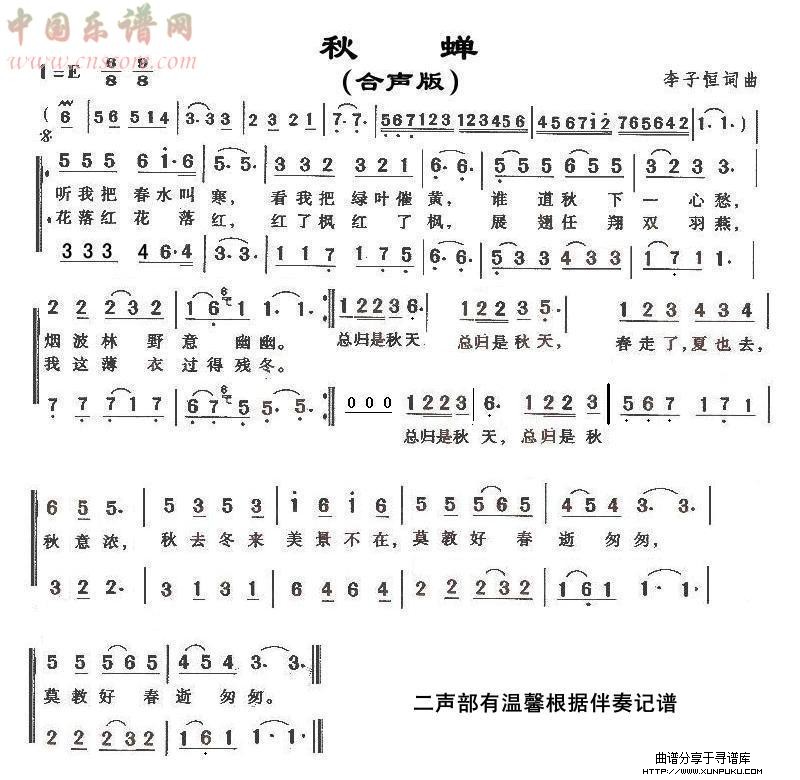 中国乐谱网
www.cnscore.com
秋 蝉
1=E 6/8 9/8
(合声版)
李子恒词曲
( 6 | 5 6 5 1 4 | 3· 3· 3 | 2 3 2 1 | 7· 7· | 567123 123456 | 4567i2 765642 | 1· 1· )
5 5 5 6 i·6 | 5· 5· | 3 3 2 3 2 1 | 6· 6· | 5 5 5 6 5 5 | 3 2 2 3·
听我把春水叫寒，看我把绿叶催黄，谁道秋下一心愁，
花落红花落红，红了枫红了枫，展翅任翔双羽燕，
3 3 3 4 6·4 | 3· 3· | 1 1 7 1 7 5 | 6· 6· | 5 3 3 4 3 3 | 1 7 1 1·
2 2 2 3 2 | 1 6 1 1· 1·
烟波林野意幽幽。 总归是秋天 总归是秋天， 春走了，夏也去，
我这薄衣过得残冬。
7 7 7 1 7 | 6 7 5 5· 5· :‖ 0 0 0 1 2 2 3 | 6· 1 2 2 3 | 5 6 7 1 7 1
总归是秋天，总归是秋
6 5 5· | 5 3 5 3 | i 6 i 6 | 5 5 5 6 5 | 4 5 4 3· 3·
秋意浓，秋去冬来美景不在，莫教好春逝匆匆，
3 2 2· | 3 1 3 1 | 6 4 6 4 | 2 2 2 3 2 | 1 6 1 1· 1·
5 5 5 6 5 | 4 5 4 3· 3·
莫教好春逝匆匆。
二声部有温馨根据伴奏记谱
2 2 2 3 2 | 1 6 1 1· 1·
曲谱分享于寻谱库
HTTP://WWW.XUNPUKU.COM